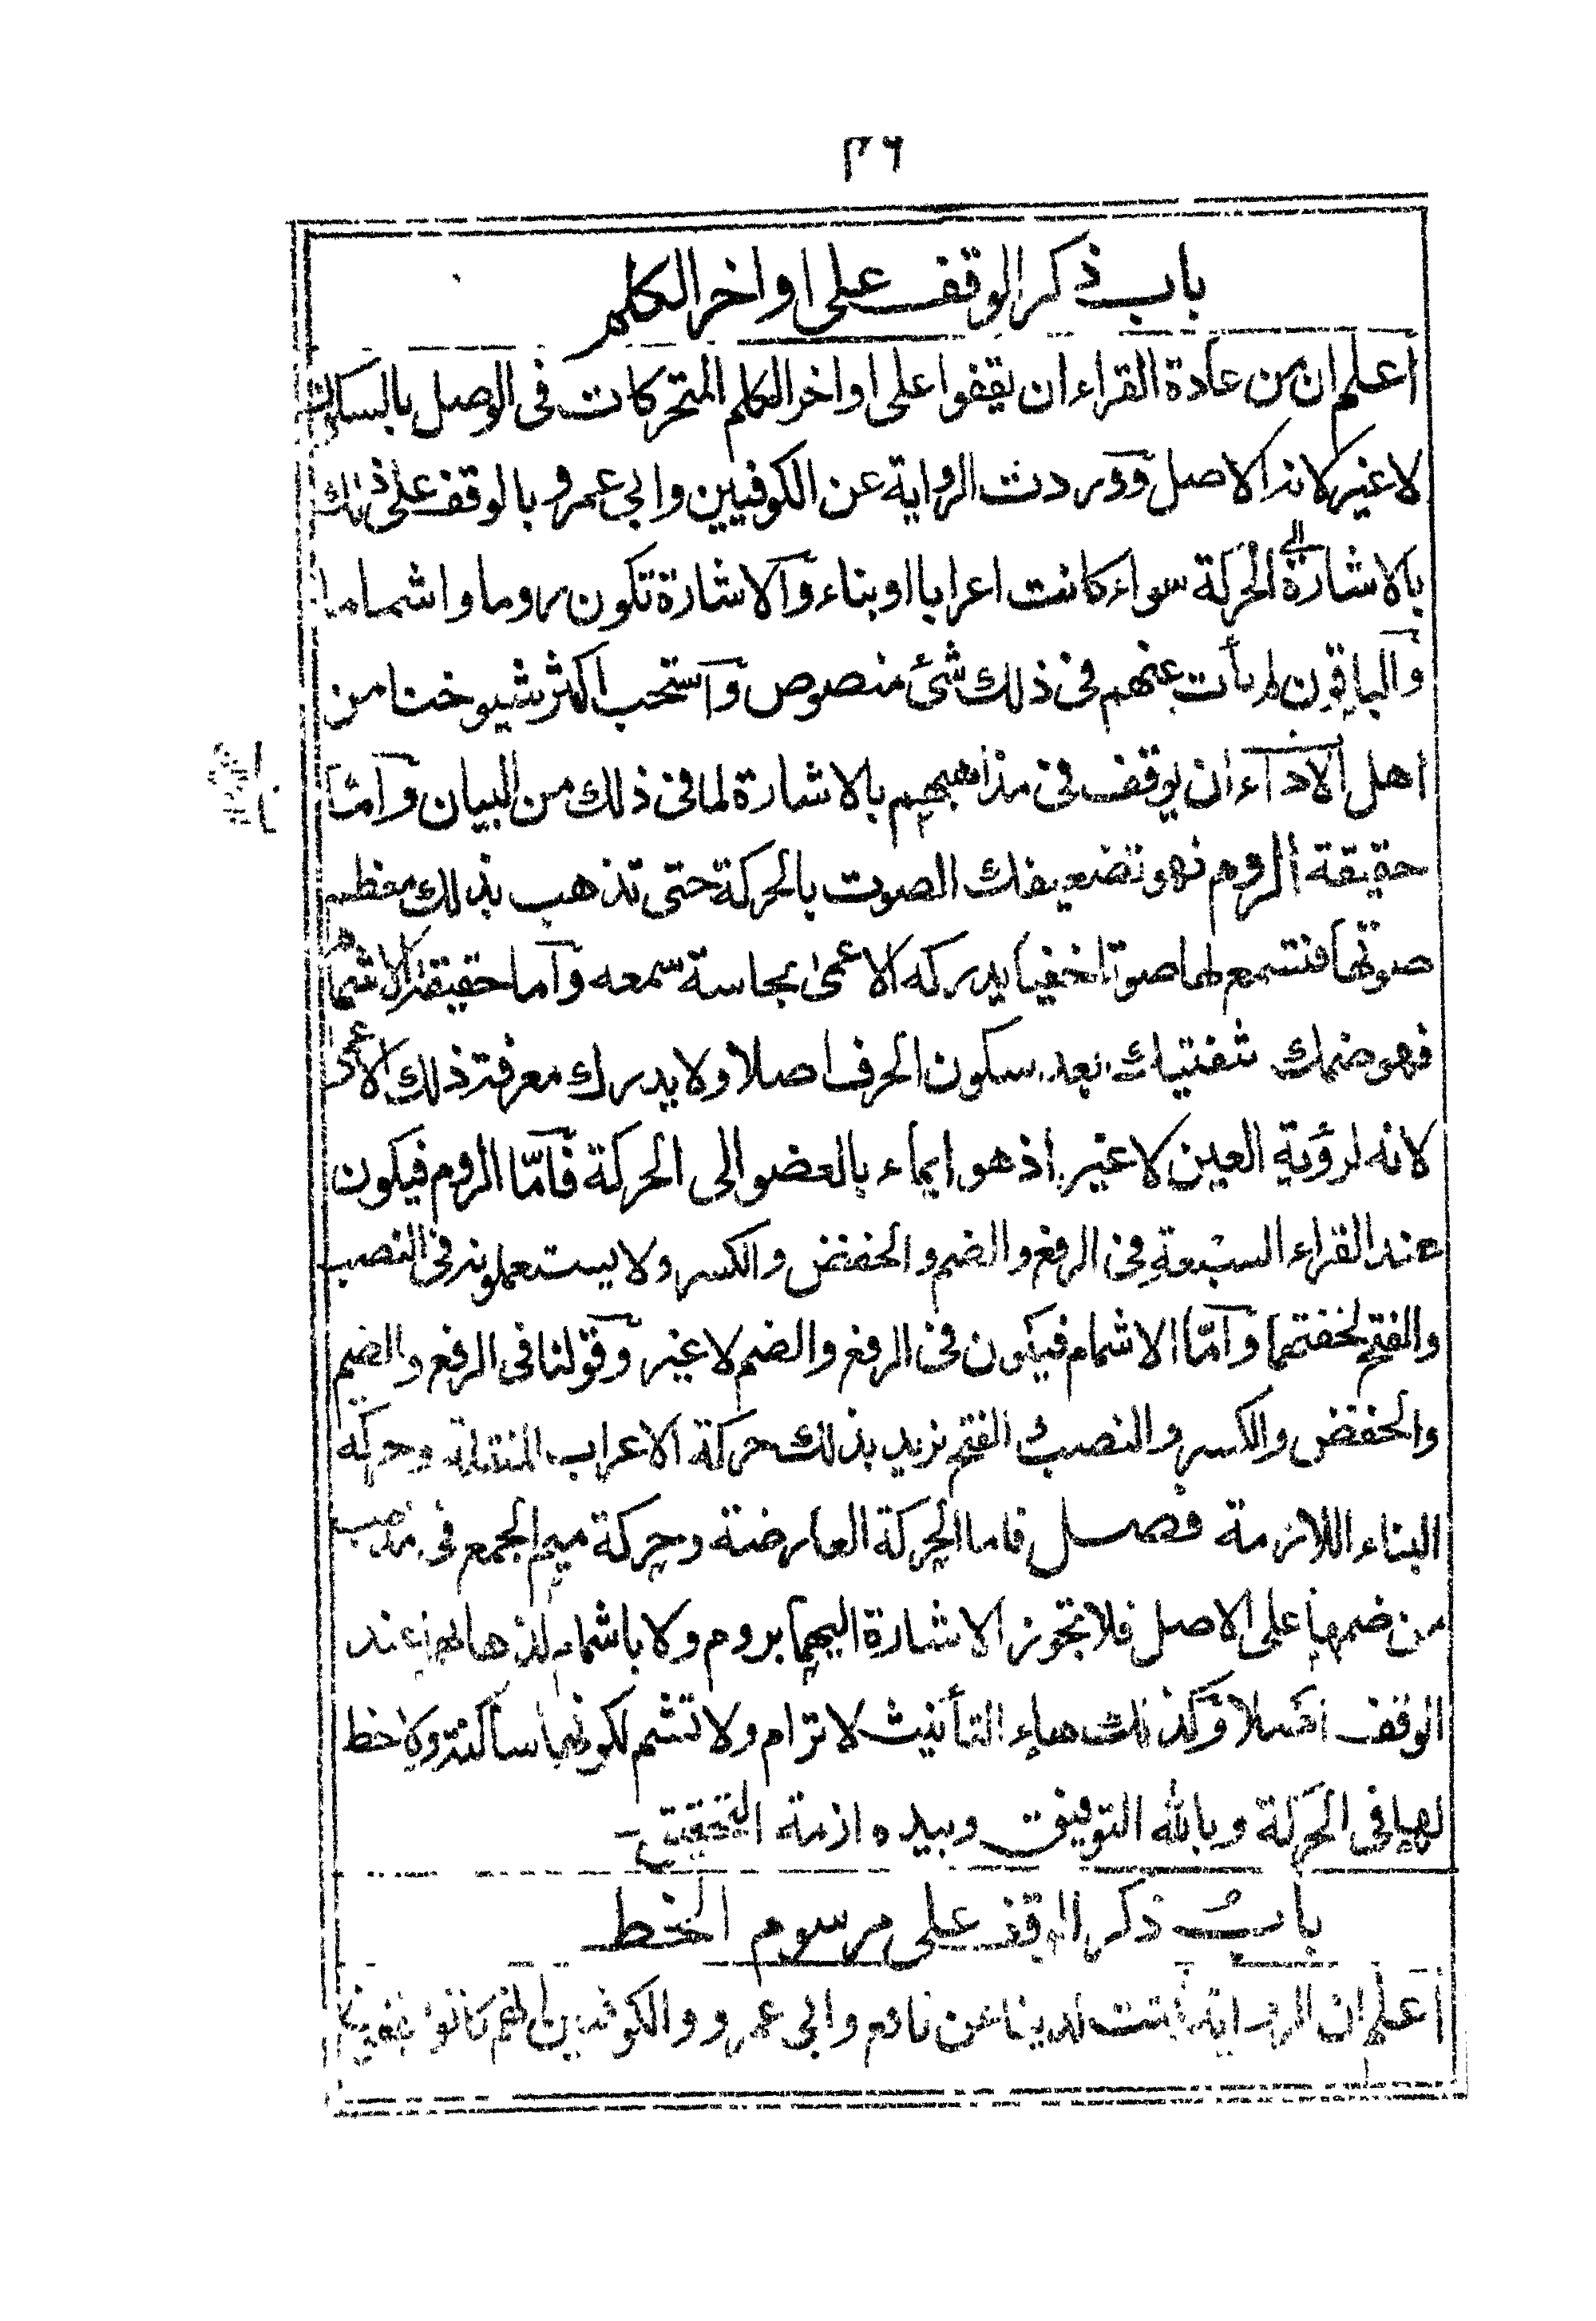 ٣٦
باب ذكر الوقف على اواخر الكلم
اعلم ان من عادة القراء ان يقفوا على اواخر الكلم المتحركات فى الوصل بالسكون
لا غير لانه الاصل ووردت الرواية عن الكوفيين وابى عمرو بالوقف على ذلك
بالاشارة الى الحركة سواء كانت اعرابا او بناء والاشارة تكون روما واشماما
والباقون لم يأت عنهم فى ذلك شئ منصوص واستحب اكثر شيوخنا من
اهل الاداء ان يوقف فى مذاهبهم بالاشارة لما فى ذلك من البيان واما
حقيقة الروم فهو تضعيفك الصوت بالحركة حتى تذهب بذلك معظم
صوتها فتسمع لها صوتا خفيا يدركه الاعمى بحاسة سمعه واما حقيقة الاشمام
فهو ضمك شفتيك بعد سكون الحرف اصلا ولا يدرك معرفة ذلك الاعمى
لانه لرؤية العين لا غير اذ هو ايماء بالعضو الى الحركة فامّا الروم فيكون
عند القراء السبعة فى الرفع والضم والخفض والكسر ولا يستعملونه فى النصب
والفتح لخفتهما وامّا الاشمام فيكون فى الرفع والضم لا غير وقولنا فى الرفع والضم
والخفض والكسر والنصب والفتح نريد بذلك حركة الاعراب المنتقلة وحركة
البناء اللازمة فصل فاما الحركة العارضة وحركة ميم الجمع فى مذهب
من ضمها على الاصل فلا تجوز الاشارة اليهما بروم ولا باشمام لذهابهما عند
الوقف اصلا وكذلك هاء التأنيث لا ترام ولا تشم لكونها ساكنة ولا حظ
لها فى الحركة وبالله التوفيق وبيده ازمة التحقيق
باب ذكر الوقف على مرسوم الخط
اعلم ان الرواية ثبتت لدينا عن نافع وابى عمرو والكوفيين انهم كانوا يقفون